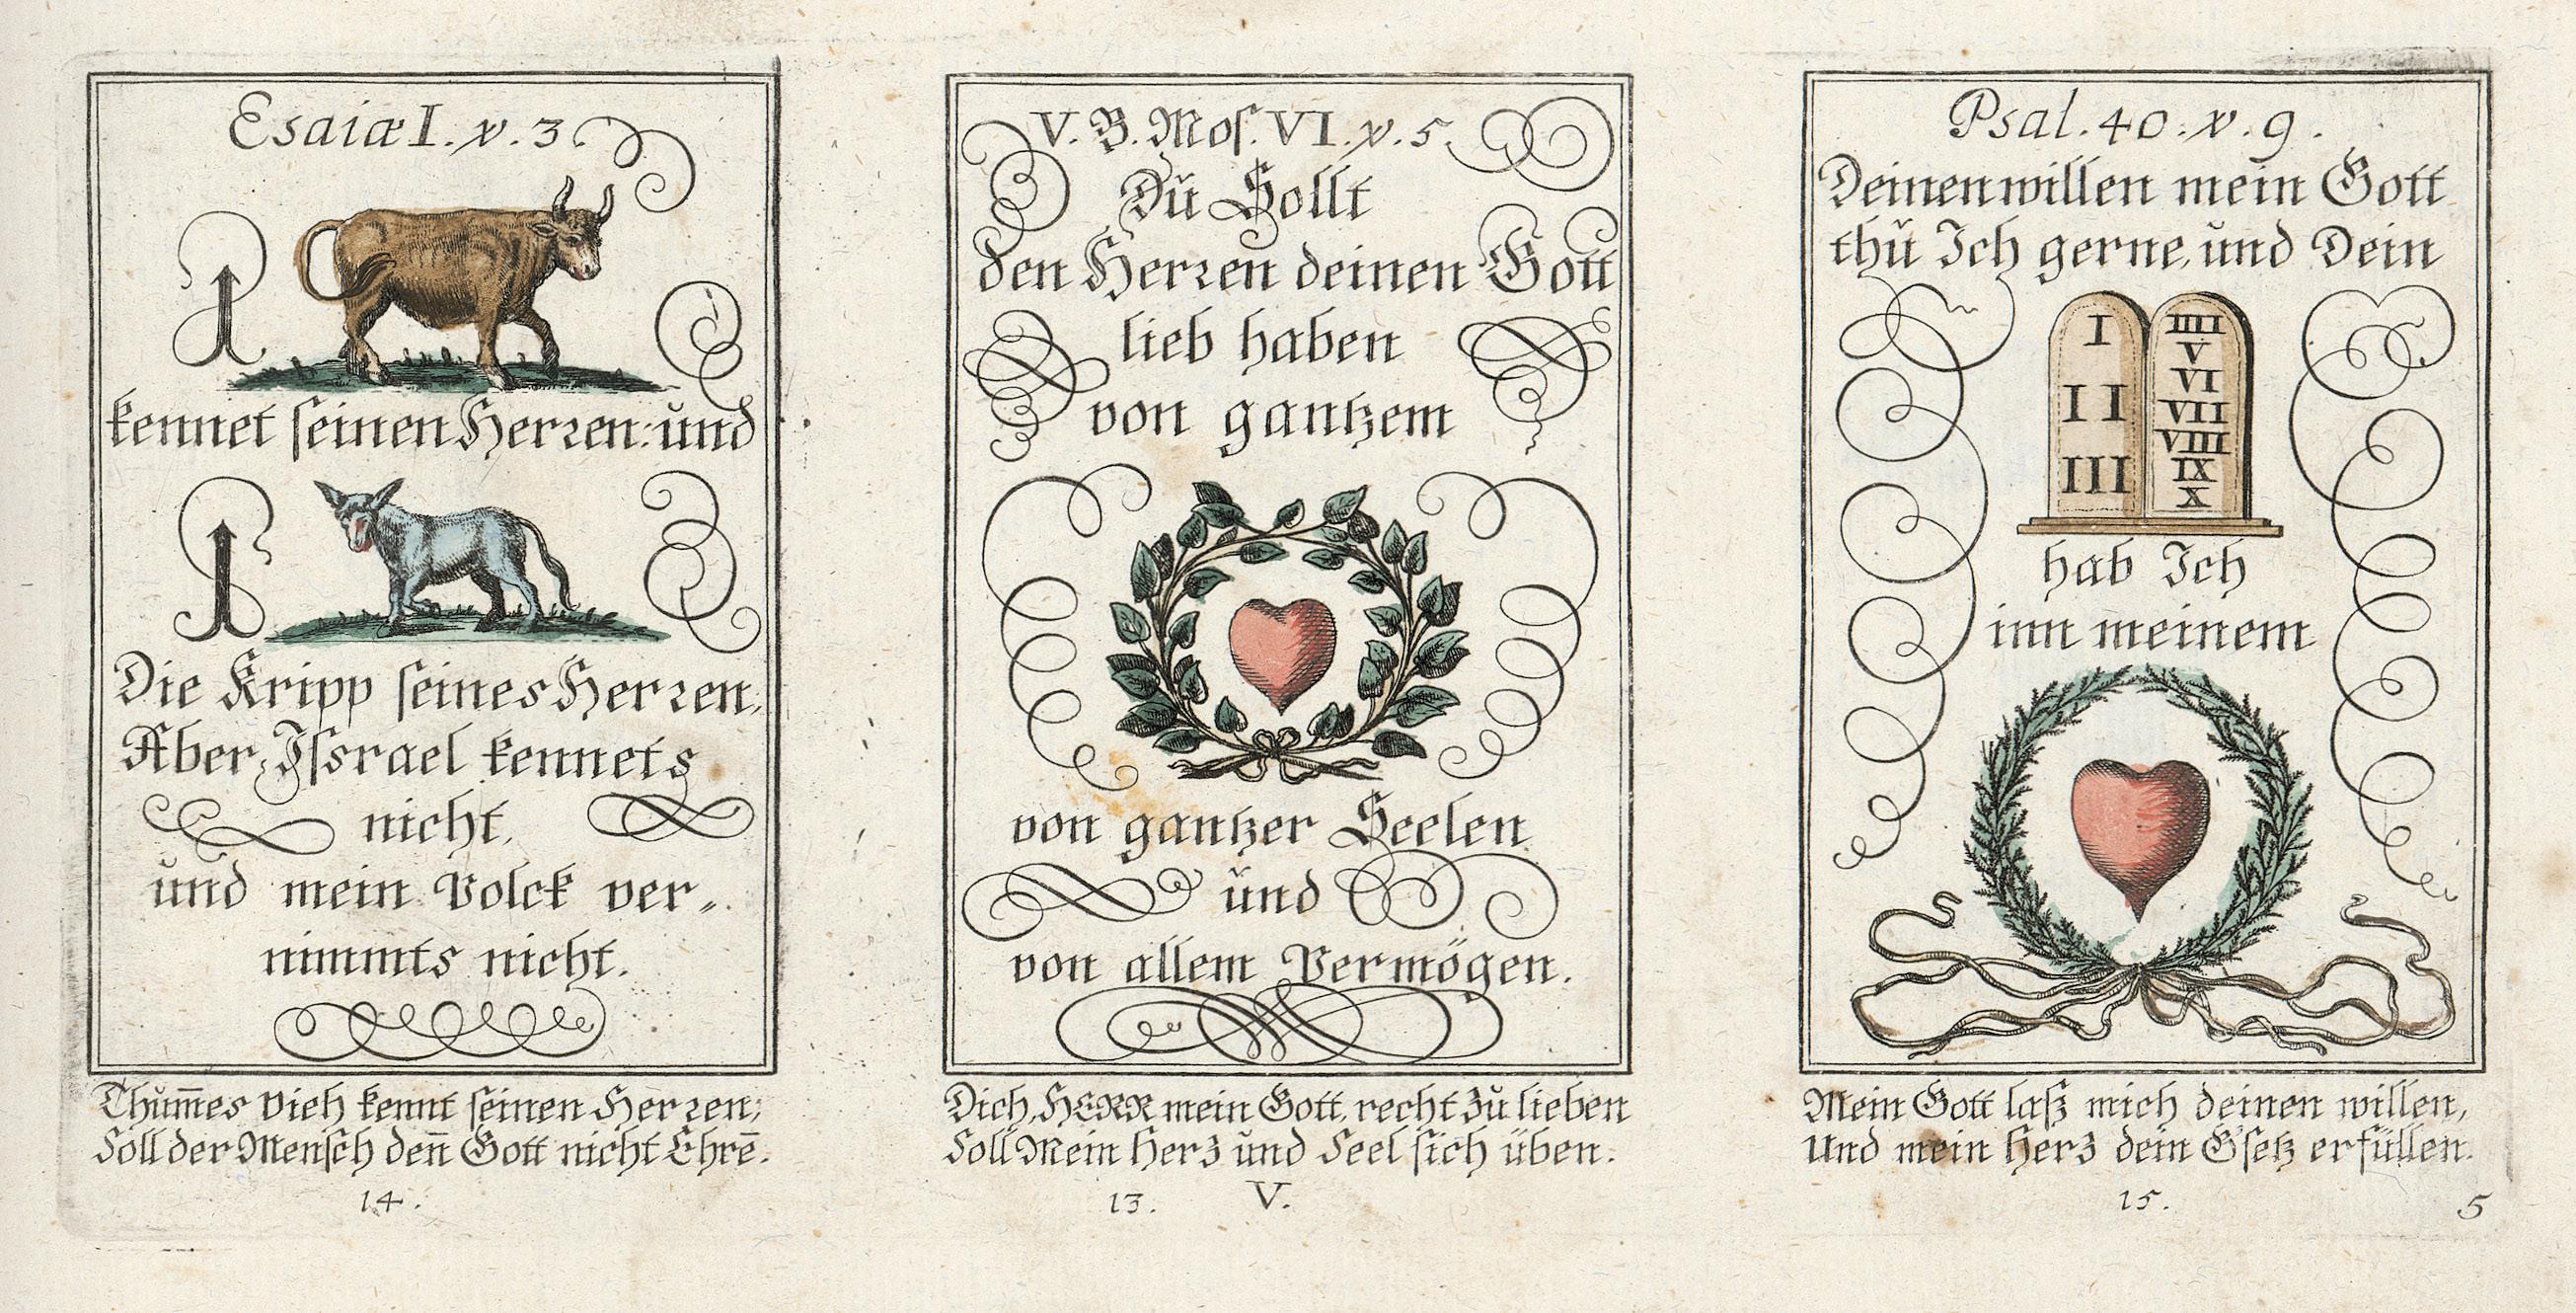 Esaiæ I. v. 3.
1
kennet seinen Herren: und
1
Die Kripp seines Herren;
Aber, Jssrael kennets
nicht,
und mein Volck ver-
nimmts nicht.
Thum̄es Vieh kennt seinen Herren;
Soll der Mensch den̄ Gott nicht Ehrē.
14.
V. B. Mos. VI. v. 5.
Dŭ Sollt
den Herren deinen Gott
lieb haben
von gantzem
von gantzer Seelen
ŭnd
von allem Vermögen.
Dich, HERR mein Gott, recht zŭ lieben
Soll Mein Herz ŭnd Seel sich üben.
13. V.
Psal. 40. v. 9.
Deinen willen mein Gott
thŭ Ich gerne, ŭnd Dein
I
II
III
IIII
V
VI
VII
VIII
IX
X
hab Ich
inn meinem
Mein Gott laß mich deinen willen,
Und mein Herz dein G'setz erfüllen.
15.
5